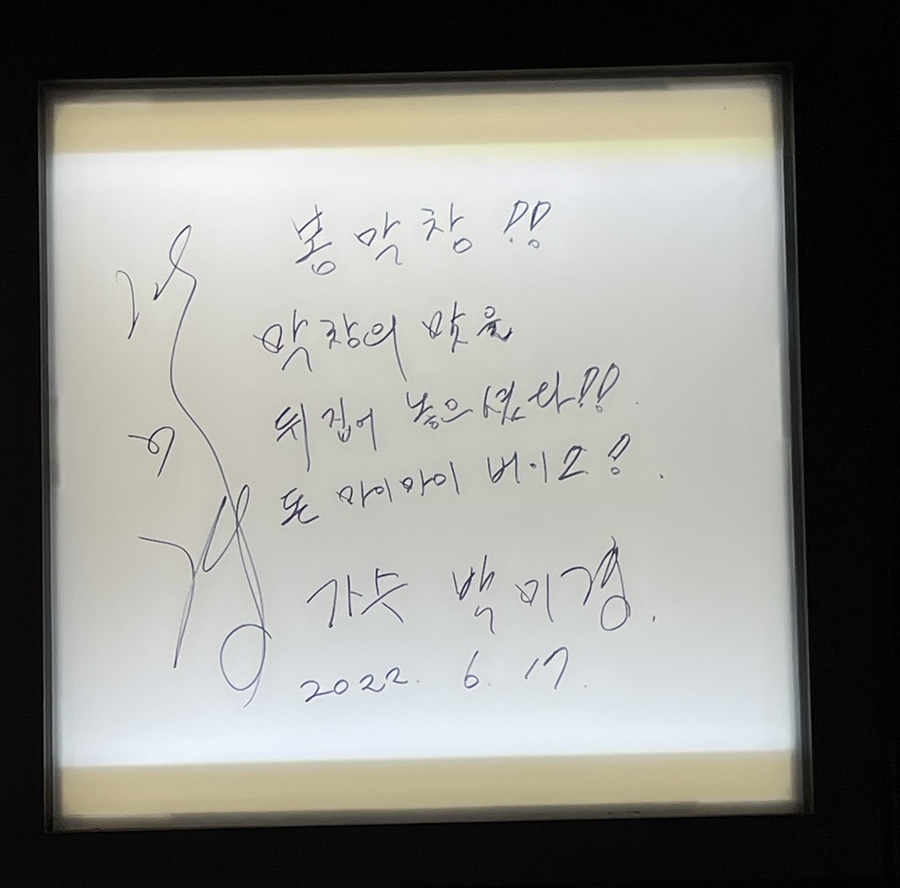 봉막창!!
막창의 맛을
뒤집어 놓으셨다!!
돈 마이마이 버이소!
가수 백미경.
2022. 6. 17.